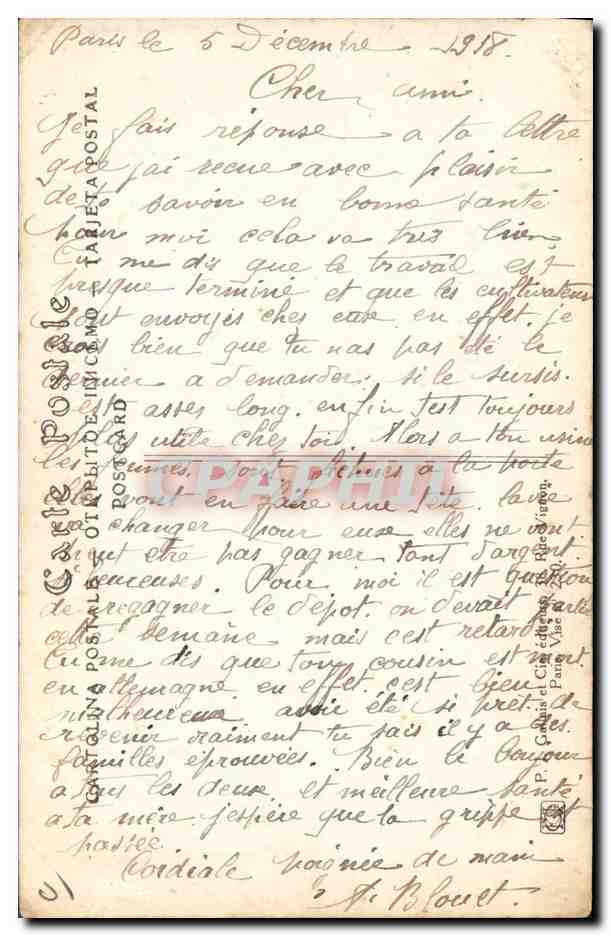 Paris le 5 Décembre 1918.
Cher ami.
Je fais réponse a ta lettre
que j'ai recue avec plaisir
de te savoir en bonne santé
pour moi cela va très bien
Tu me dis que le travail est
presque terminé et que les cultivateurs
sont envoyés chez eux en effet. je
crois bien que tu nas pas été le
dernier a demander. si le sursis.
est asses long. enfin t'est toujours
plus utile chez toi. Alors a ton usine
les femmes. sont fichues a la porte
elles vont en faire une tête. la vie
va changer pour eux elles ne vont
peut etre pas gagner tant d'argent.
Pour moi il est question
de regagner le dépot. on devait partir
cette semaine mais c'est retardé
Tu me dis que ton cousin est mort
en allemagne. en effet. c'est bien
malheureux avoir été si pret de
revenir vraiment tu sais il y a des
familles éprouvées. Bien le bonjour
a tous les deux et meilleure santé
a ta mère. j'espère que la grippe est
passée
Cordiale poignée de main
A. Blouet.
Carte Postale
CARTOLINA POSTALE — ОТКРЫТОЕ ПИСЬМО — TARJETA POSTAL
POSTCARD
CPAPHIL
P. Gallais et Cie, éditeurs, Rue Vignon,
Paris. Visé